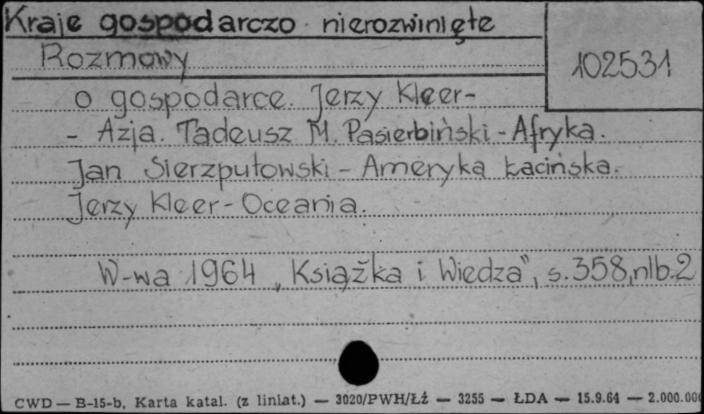 Kraje gospodarczo nierozwinięte
102531
Rozmowy
o gospodarce. Jerzy Kleer-
- Azja. Tadeusz M. Pasierbiński - Afryka.
Jan Sierzputowski - Ameryka Łacińska.
Jerzy Kleer - Oceania.
W-wa 1964 „Książka i Wiedza", s. 358, nlb. 2
CWD — B-15-b, Karta katal. (z liniat.) — 3020/PWH/Łź — 3255 — ŁDA — 15.9.64 — 2.000.000